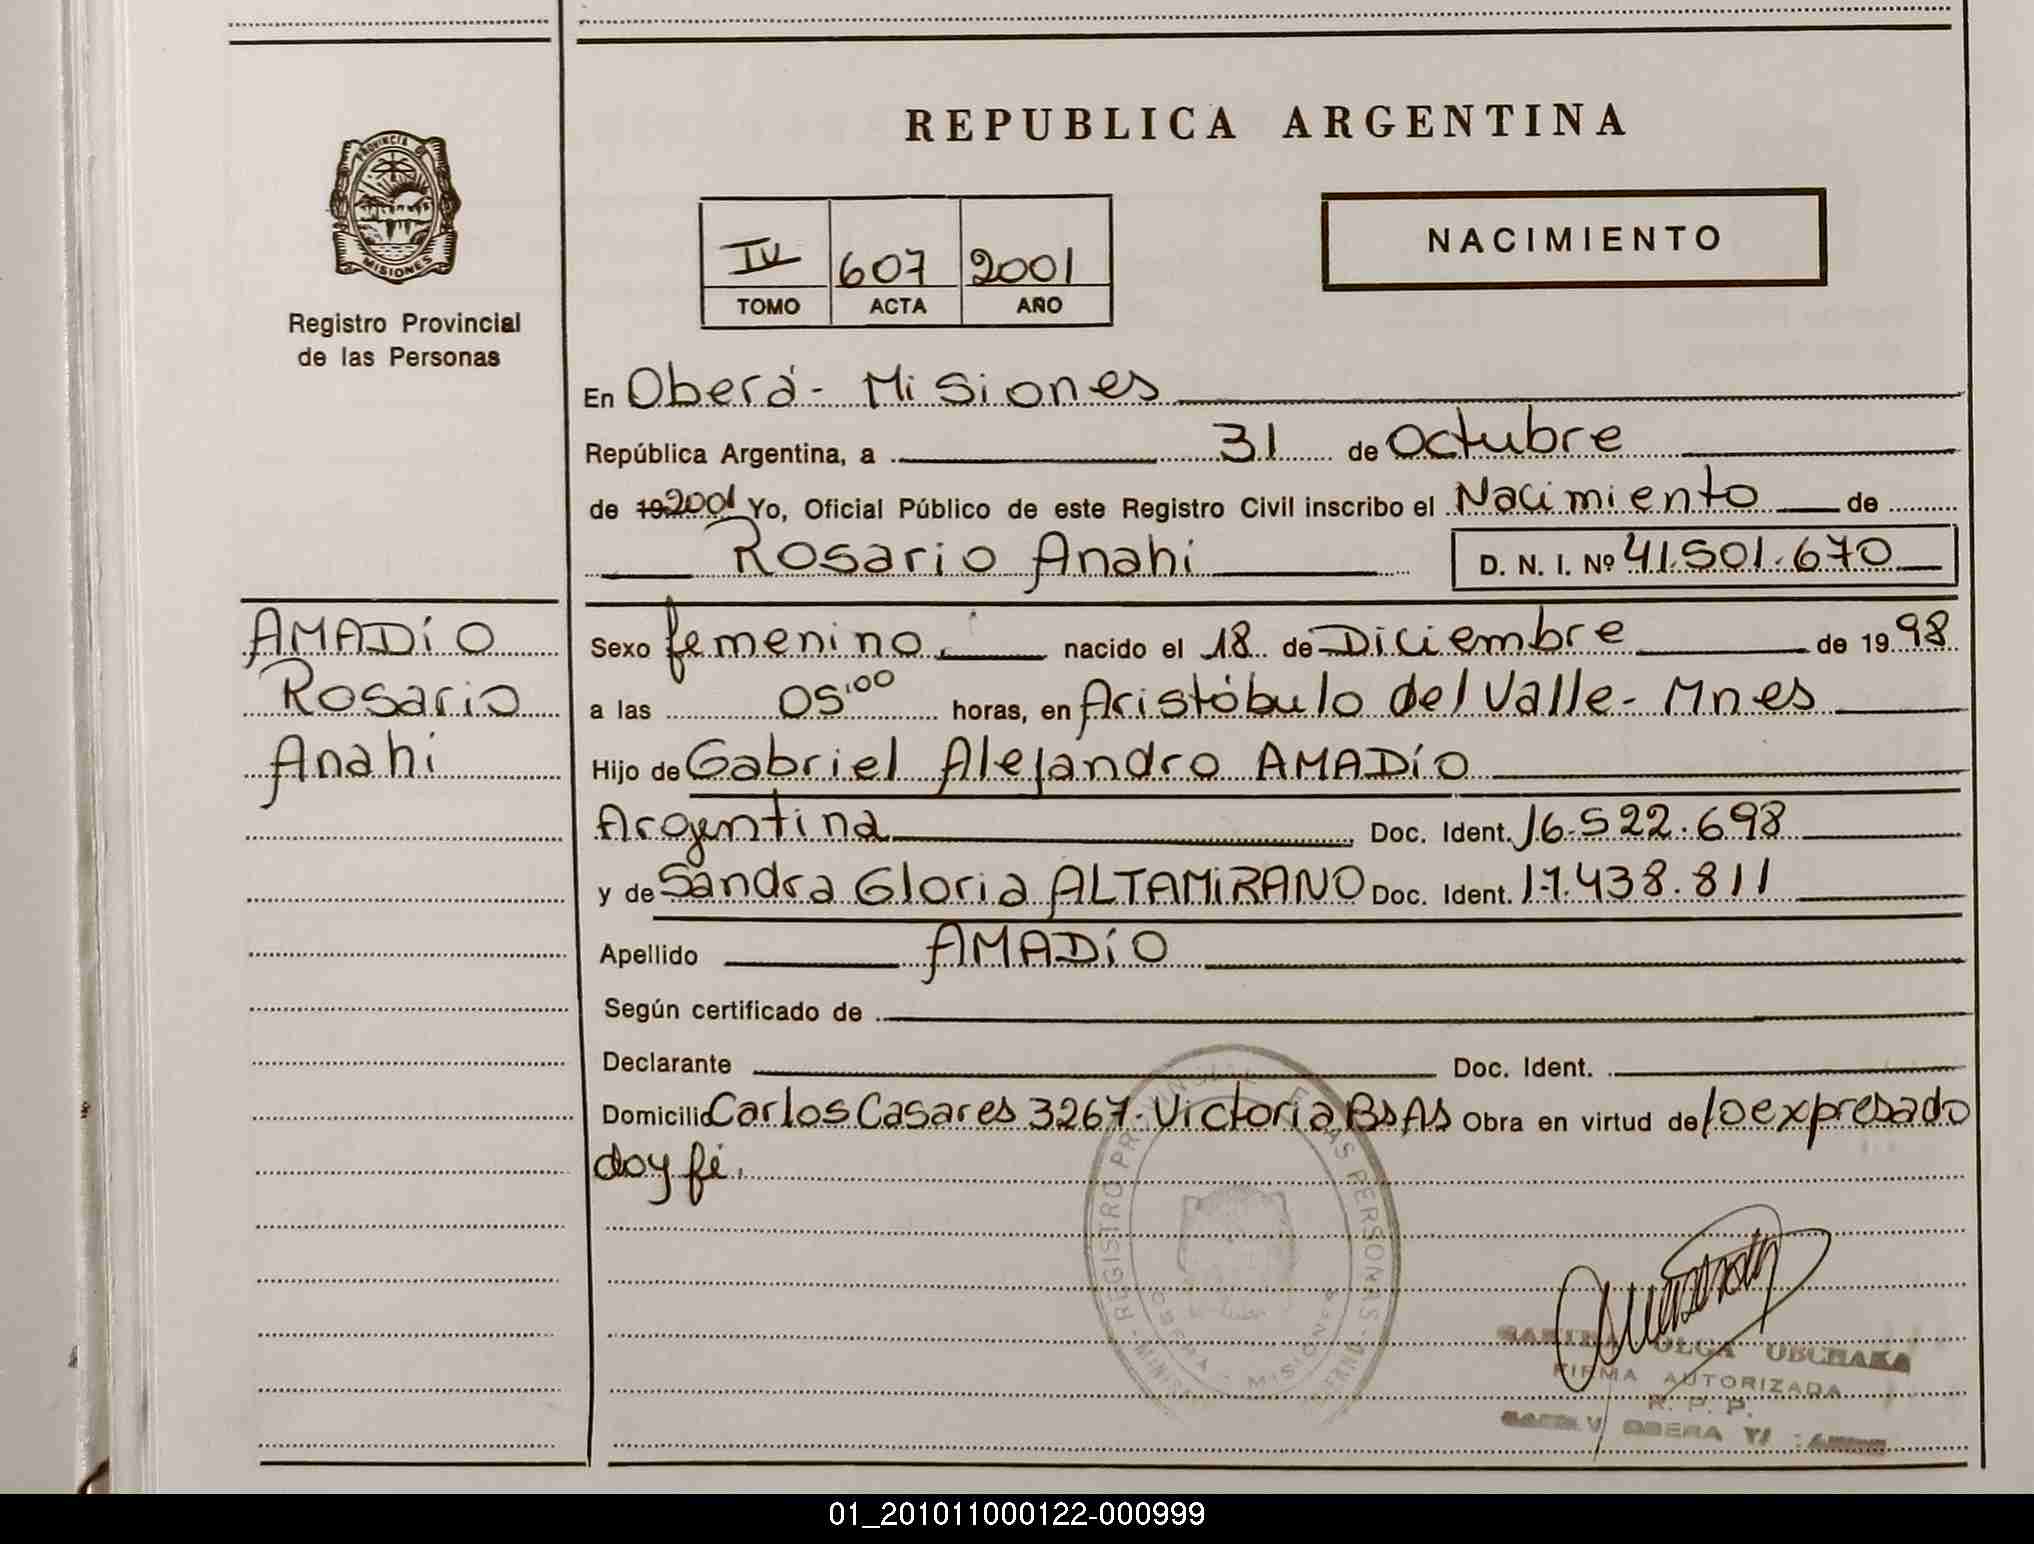 REPUBLICA ARGENTINA
PROVINCIA DE
MISIONES
Registro Provincial
de las Personas
IV 607 2001
TOMO ACTA AÑO
NACIMIENTO
En Oberá - Misiones
República Argentina, a 31 de Octubre
de 19 2001 Yo, Oficial Público de este Registro Civil inscribo el Nacimiento de
Rosario Anahi D. N. I. Nº 41.501.670
AMADÍO
Rosario
Anahi
Sexo femenino. nacido el 18 de Diciembre de 19 98
a las 05:00 horas, en Aristóbulo del Valle - Mnes
Hijo de Gabriel Alejandro AMADÍO
Argentina Doc. Ident. 16.522.698
y de Sandra Gloria ALTAMIRANO Doc. Ident. 17.438.811
Apellido AMADÍO
Según certificado de
Declarante Doc. Ident.
Domicilio Carlos Casares 3267 - Victoria Bs As Obra en virtud de lo expresado
doy fé.
REGISTRO PROVINCIAL DE LAS PERSONAS
OBERA - MISIONES
OLGA
FIRMA AUTORIZADA
R. P. P.
OBERA
01_201011000122-000999